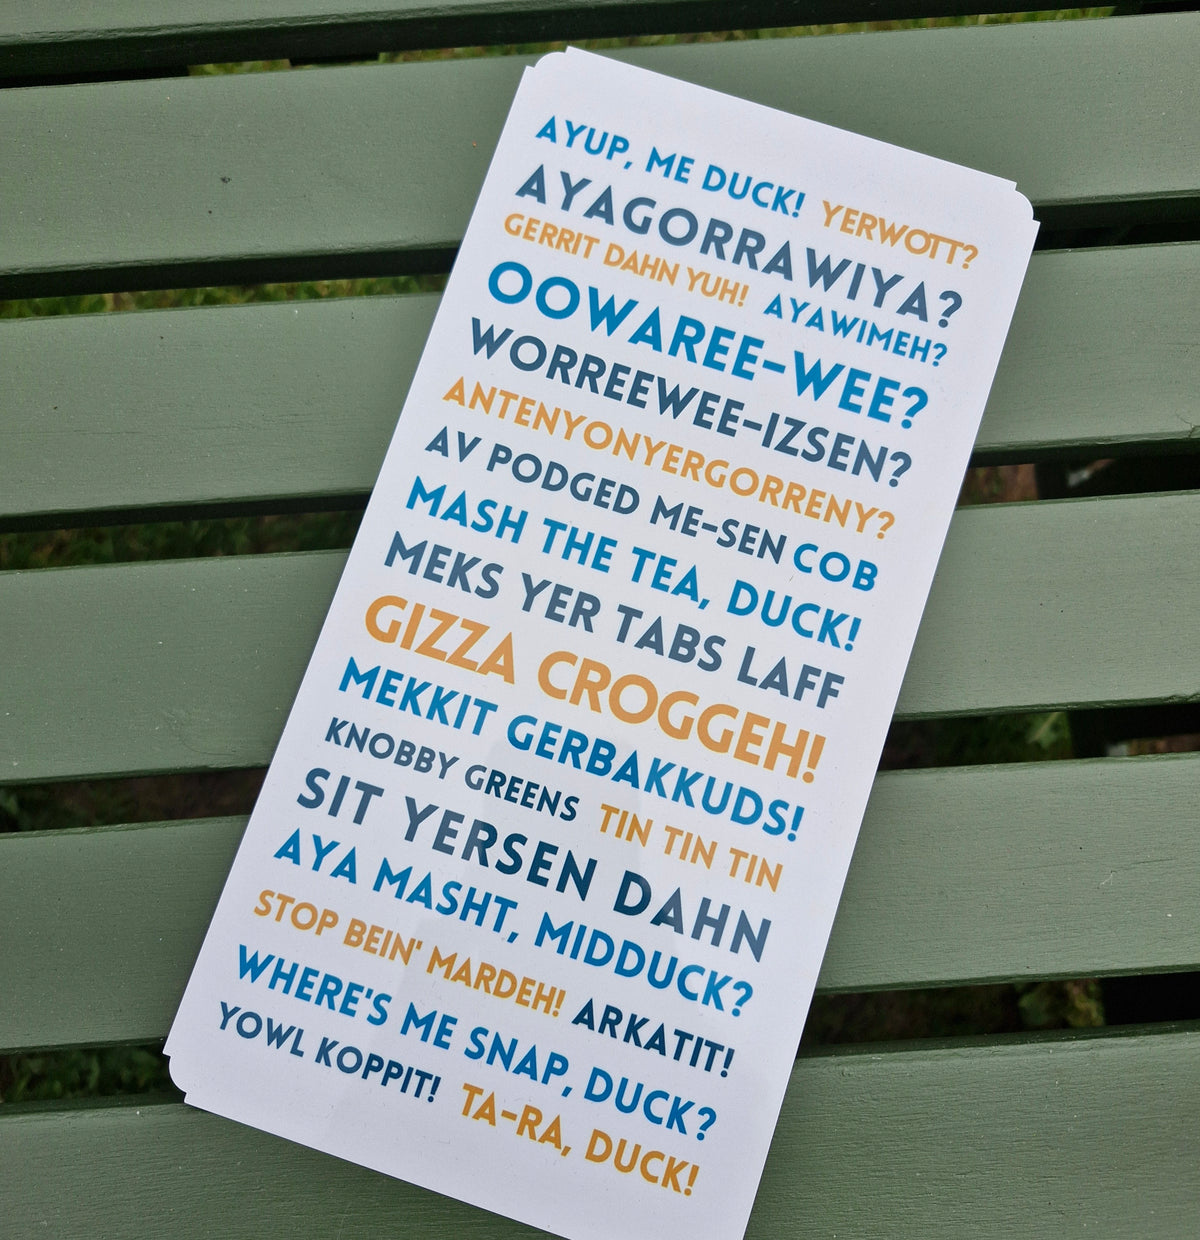 AYUP, ME DUCK! YERWOTT?
AYAGORRAWIYA?
GERRIT DAHN YUH! AYAWIMEH?
OOWAREE-WEE?
WORREEWEE-IZSEN?
ANTENYONYERGORRENY?
AV PODGED ME-SEN COB
MASH THE TEA, DUCK!
MEKS YER TABS LAFF
GIZZA CROGGEH!
MEKKIT GERBAKKUDS!
KNOBBY GREENS TIN TIN TIN
SIT YERSEN DAHN
AYA MASHT, MIDDUCK?
STOP BEIN' MARDEH! ARKATIT!
WHERE'S ME SNAP, DUCK?
YOWL KOPPIT! TA-RA, DUCK!